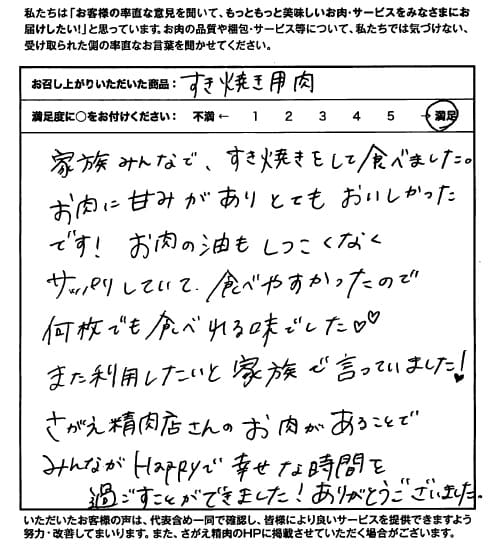 私たちは「お客様の率直な意見を聞いて、もっともっと美味しいお肉・サービスをみなさまにお
届けしたい！」と思っています。お肉の品質や梱包・サービス等について、私たちでは気づけない、
受け取られた側の率直なお言葉を聞かせてください。
お召し上がりいただいた商品： すき焼き用肉
満足度に○をお付けください： 不満 ← 1 2 3 4 5 → 満足
家族みんなで、すき焼きをして食べました。
お肉に甘みがありとてもおいしかった
です! お肉の油もしつこくなく
サッパリしていて、食べやすかったので
何枚でも食べれる味でした♡♡
また利用したいと家族で言っていました!♥
さがえ精肉店さんのお肉があることで
みんながHappyで幸せな時間を
過ごすことができました! ありがとうございました。
いただいたお客様の声は、代表含め一同で確認し、皆様により良いサービスを提供できますよう
努力・改善してまいります。また、さがえ精肉のHPに掲載させていただく場合がございます。